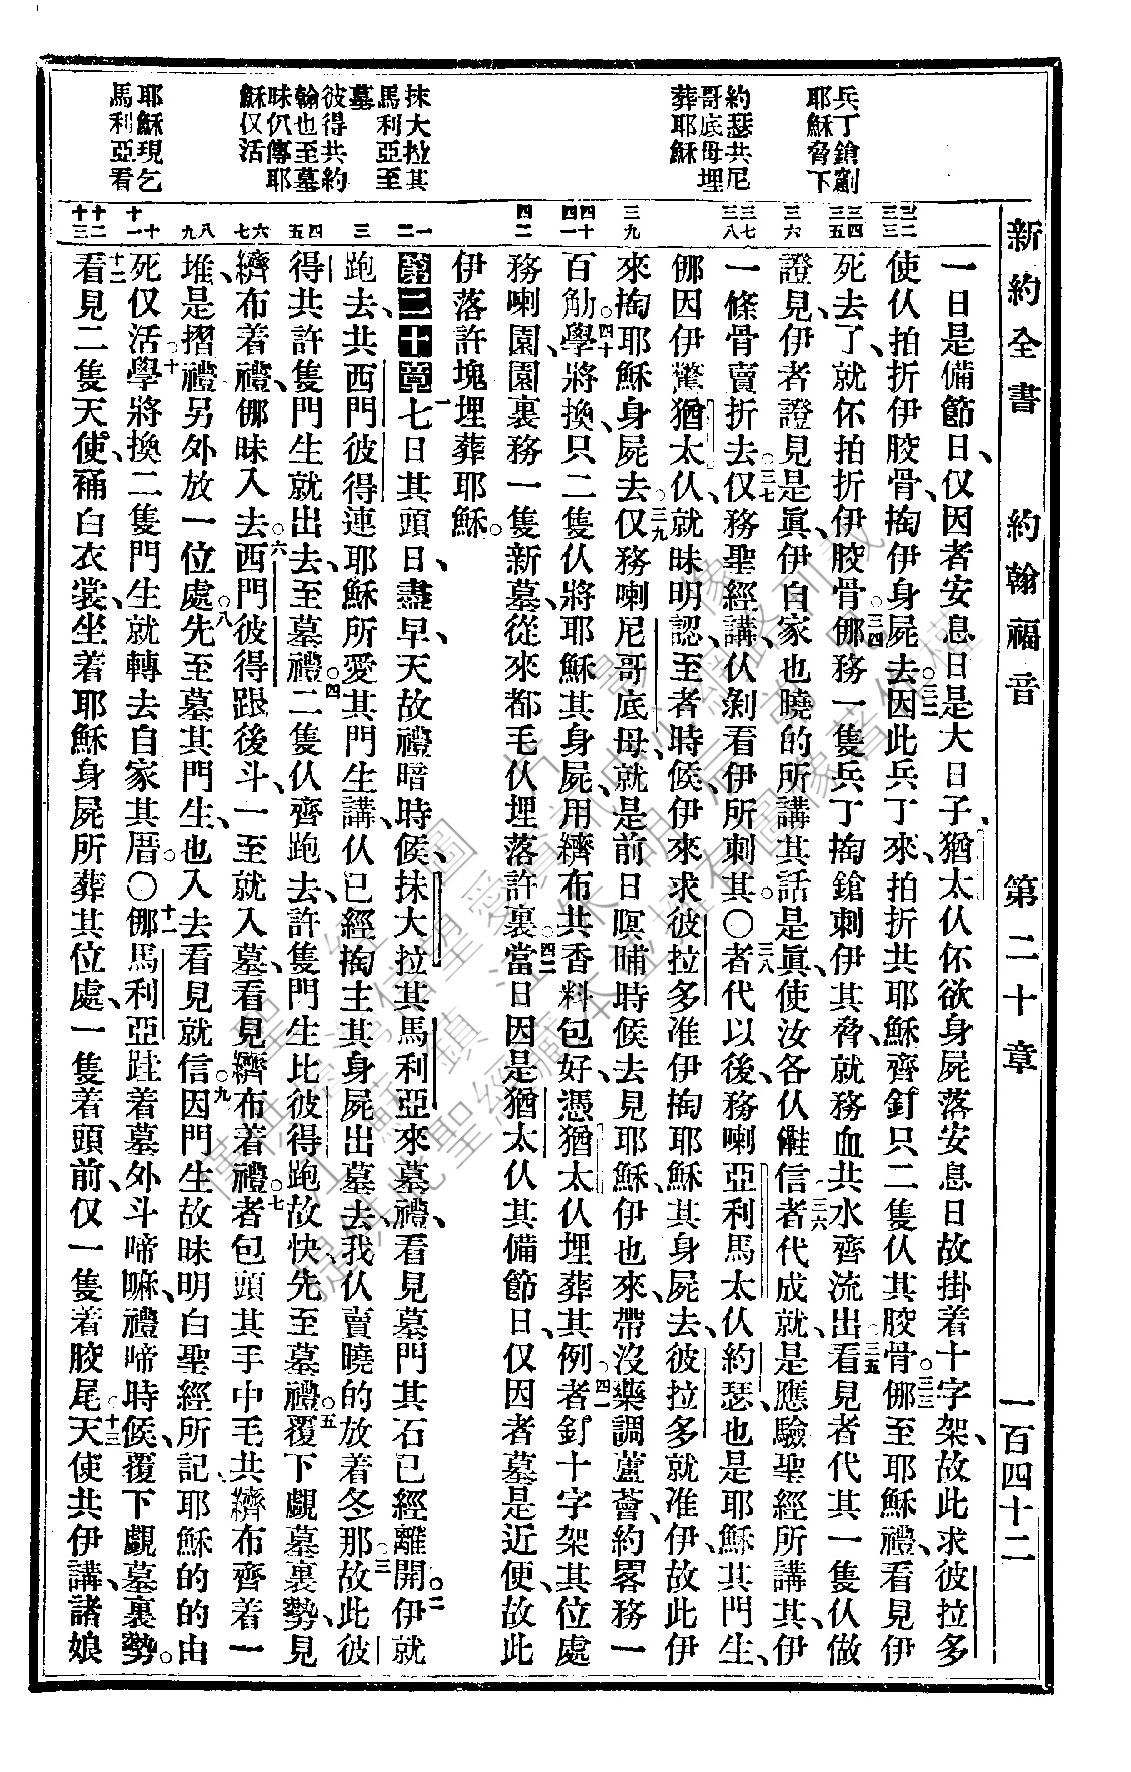 新約全書 約翰福音 第二十章 一百四十二
兵丁鎗劄
耶穌脅下
約瑟共尼
哥底母埋
葬耶穌
抹大拉其
馬利亞至
墓
彼得共約
翰也至墓
昧仈傳耶
穌仅活
耶穌現乞
馬利亞看
一日是備節日、仅因者安息日是大日子、猶太仈伓欲身屍落安息日故掛着十字架、故此求彼拉多
使仈拍折伊骹骨、掏伊身屍去。三二因此兵丁來、拍折共耶穌齊釘只二隻仈其骹骨。三三㑚至耶穌禮、看見伊
死去了就伓拍折伊骹骨。三四㑚務一隻兵丁掏鎗刺伊其脅、就務血共水齊流出。三五看見者代其一隻仈做
證見、伊者證見是眞、伊自家也曉的所講其話是眞、使汝各仈㒤信。三六者代成就、是應驗聖經所講其、伊
一條骨賣折去。三七仅務聖經講、仈剝看伊所刺其。〇三八者代以後、務喇亞利馬太仈約瑟、也是耶穌其門生、
㑚因伊驚猶太仈、就昧明認、至者時候、伊來求彼拉多准伊掏耶穌其身屍去、彼拉多就准伊、故此伊
來掏耶穌身屍去。三九仅務喇尼哥底母、就是前日暝晡時候去見耶穌、伊也來、帶沒藥調蘆薈、約畧務一
百觔。四十學將換、只二隻仈將耶穌其身屍、用纃布共香料包好、憑猶太仈埋葬其例。四一者釘十字架其位處
務喇園、園裏務一隻新墓、從來都毛仈埋落許裏。四二當日因是猶太仈其備節日、仅因者墓是近便、故此
伊落許塊埋葬耶穌。
第二十章 一七日其頭日、盡早天故禮暗時候、抹大拉其馬利亞來墓禮、看見墓門其石已經離開。二伊就
跑去、共西門彼得連耶穌所愛其門生講、仈已經掏主其身屍出墓去、我仈賣曉的放着冬那。三故此彼
得共許隻門生就出去、至墓禮。四二隻仈齊跑去、許隻門生比彼得跑故快、先至墓禮。五覆下覷墓裏勢、見
纃布着禮、㑚昧入去。六西門彼得跟後斗、一至就入墓、看見纃布着禮。七者包頭其手巾毛共纃布齊着一
堆、是摺禮另外放一位處。八先至墓其門生、也入去看見就信。九因門生故昧明白聖經所記耶穌的的由
死仅活。十學將換二隻門生就轉去自家其厝。〇十一㑚馬利亞跬着墓外斗啼嘛、禮啼時候、覆下覷墓裏勢。
十二看見二隻天使、䘼白衣裳、坐着耶穌身屍所葬其位處、一隻着頭前、仅一隻着骹尾。十三天使共伊講、諸娘